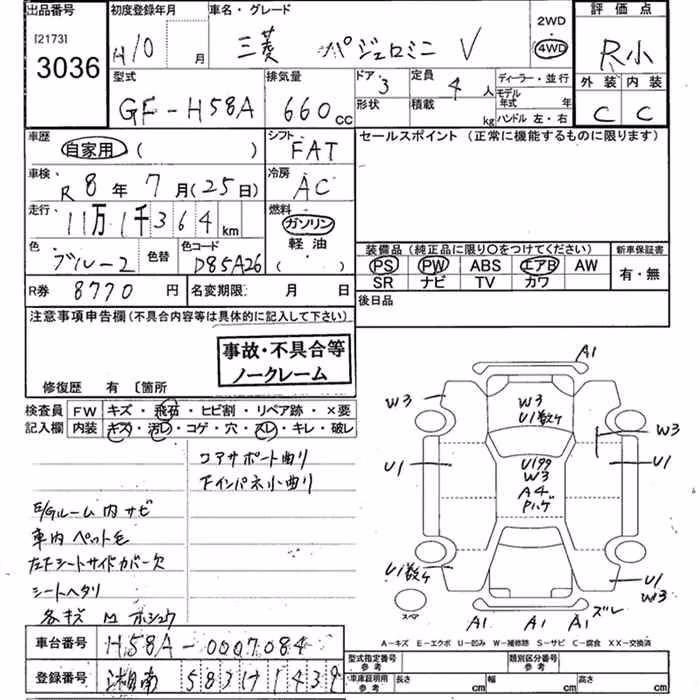 出品番号 初度登録年月 車名・グレード 2WD 評価点
[2173] H10 月 三菱 パジェロミニ V 4WD R小
3036
型式 排気量 ドア 定員 ディーラー・並行 外装 内装
GF-H58A 660cc 3 4人 モデル年式 年 C C
形状 積載 kg ハンドル 左・右
車歴 シフト セールスポイント (正常に機能するものに限ります)
自家用 ( ) FAT
車検 R8年7月(25日) 冷房 AC
走行 11万1千364km 燃料 ガソリン
軽油
( )
色 ブルー2 色替 色コード D85A26
装備品 (純正品に限り○をつけてください) 新車保証書
PS PW ABS エアB AW 有・無
SR ナビ TV カワ
R券 8770円 名変期限 月 日 後日品
注意事項申告欄 (不具合内容等は具体的に記入して下さい)
事故・不具合等
ノークレーム
修復歴 有 [箇所
検査員 FW キズ・飛石・ヒビ割・リペア跡・×要
記入欄 内装 キズ・汚レ・コゲ・穴・スレ・キレ・破レ
コアサポート曲り
下インパネ小曲り
E/Gルーム内サビ
車内ペット毛
左下シートサイドカバー欠
シートヘタリ
各キズ M ホシュウ
A1
W3 W3 W3
U1数ヶ
U1 U199 U1
W3
A4
Pハゲ
U1数ヶ U1
W3
スペア A1 A1 A1 ズレ
A-キズ E-エクボ U-凹み W-補修跡 S-サビ C-腐食 XX-交換済
車台番号 H58A-0007084
登録番号 湘南 583
型式指定番号 参考 類別区分番号 参考
車庫証明用 参考 長さ cm 幅 cm 高さ cm